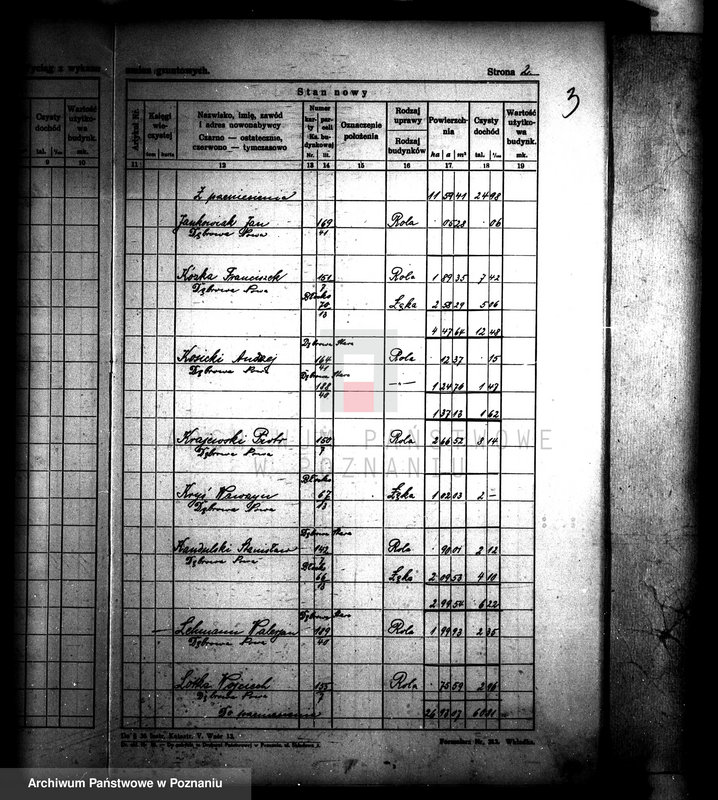 yciąg z wykazu
maina gruntowych.
Strona 2
3
Stan nowy
Czysty dochód
tal. 1/100
Wartość użytkowa budynk.
mk.
9 10
Artykuł Nr.
Księgi wieczystej
tom karta
Nazwisko, imię, zawód i adres nowonabywcy
Czarno — ostatecznie, czerwono — tymczasowo
Numer
karty parceli
Ks. budynkowej
Nr. lit.
Oznaczenie położenia
Rodzaj uprawy
Rodzaj budynków
Powierzchnia
ha a m²
Czysty dochód
tal. 1/100
Wartość użytkowa budynk.
mk.
11 12 13 14 15 16 17 18 19
Z przeniesienia 11 59 41 24 98
Jankowiak Jan 169 Rola 05 28 06
Dąbrowa Nowa 41
Kózka Franciszek 151 Rola 1 89 35 7 42
Dąbrowa Nowa 7
70 Łąka 2 58 29 5 06
13
4 47 64 12 48
Dąbrowa Stara
Kosicki Andrzej 164 Rola 12 37 15
Dąbrowa Nowa 41
Dąbrowa Stara
188 —„— 1 24 76 1 47
40
1 37 13 1 62
Krajewski Piotr 150 Rola 2 66 52 8 14
Dąbrowa Nowa 7
Kryś Wawrzyn 67 Łąka 1 02 03 2 —
Dąbrowa Nowa 13
Dąbrowa Stara
Kandulski Stanisław 142 Rola 90 01 2 12
Dąbrowa Nowa 7
66 Łąka 2 09 53 4 10
13
2 99 54 6 22
Dąbrowa Stara
Lehmann Waleryan 189 Rola 1 99 93 2 35
Dąbrowa Nowa 40
Lotka Wojciech 155 Rola 75 59 2 96
Dąbrowa Nowa 7
Do przeniesienia 26 93 07 60 81
Do § 36 Instr. Katastr. V. Wzór 13.
Formularz Nr. 313. Wkładka.
ARCHIWUM PAŃSTWOWE
W POZNANIU
Archiwum Państwowe w Poznaniu